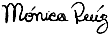 Mónica Puig